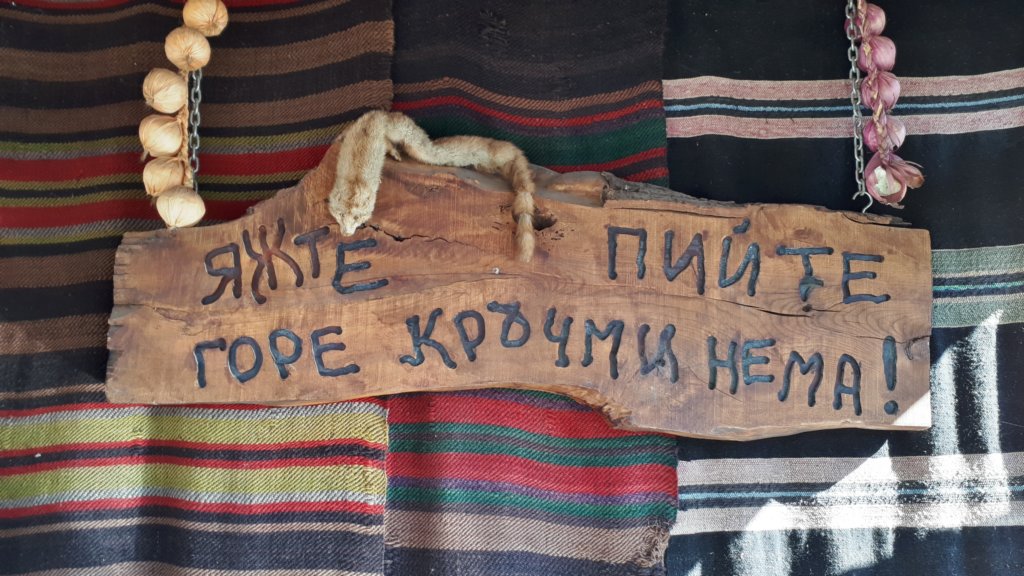 ЯЖТЕ ПИЙТЕ
ГОРЕ КРЪЧМИ НЕМА!